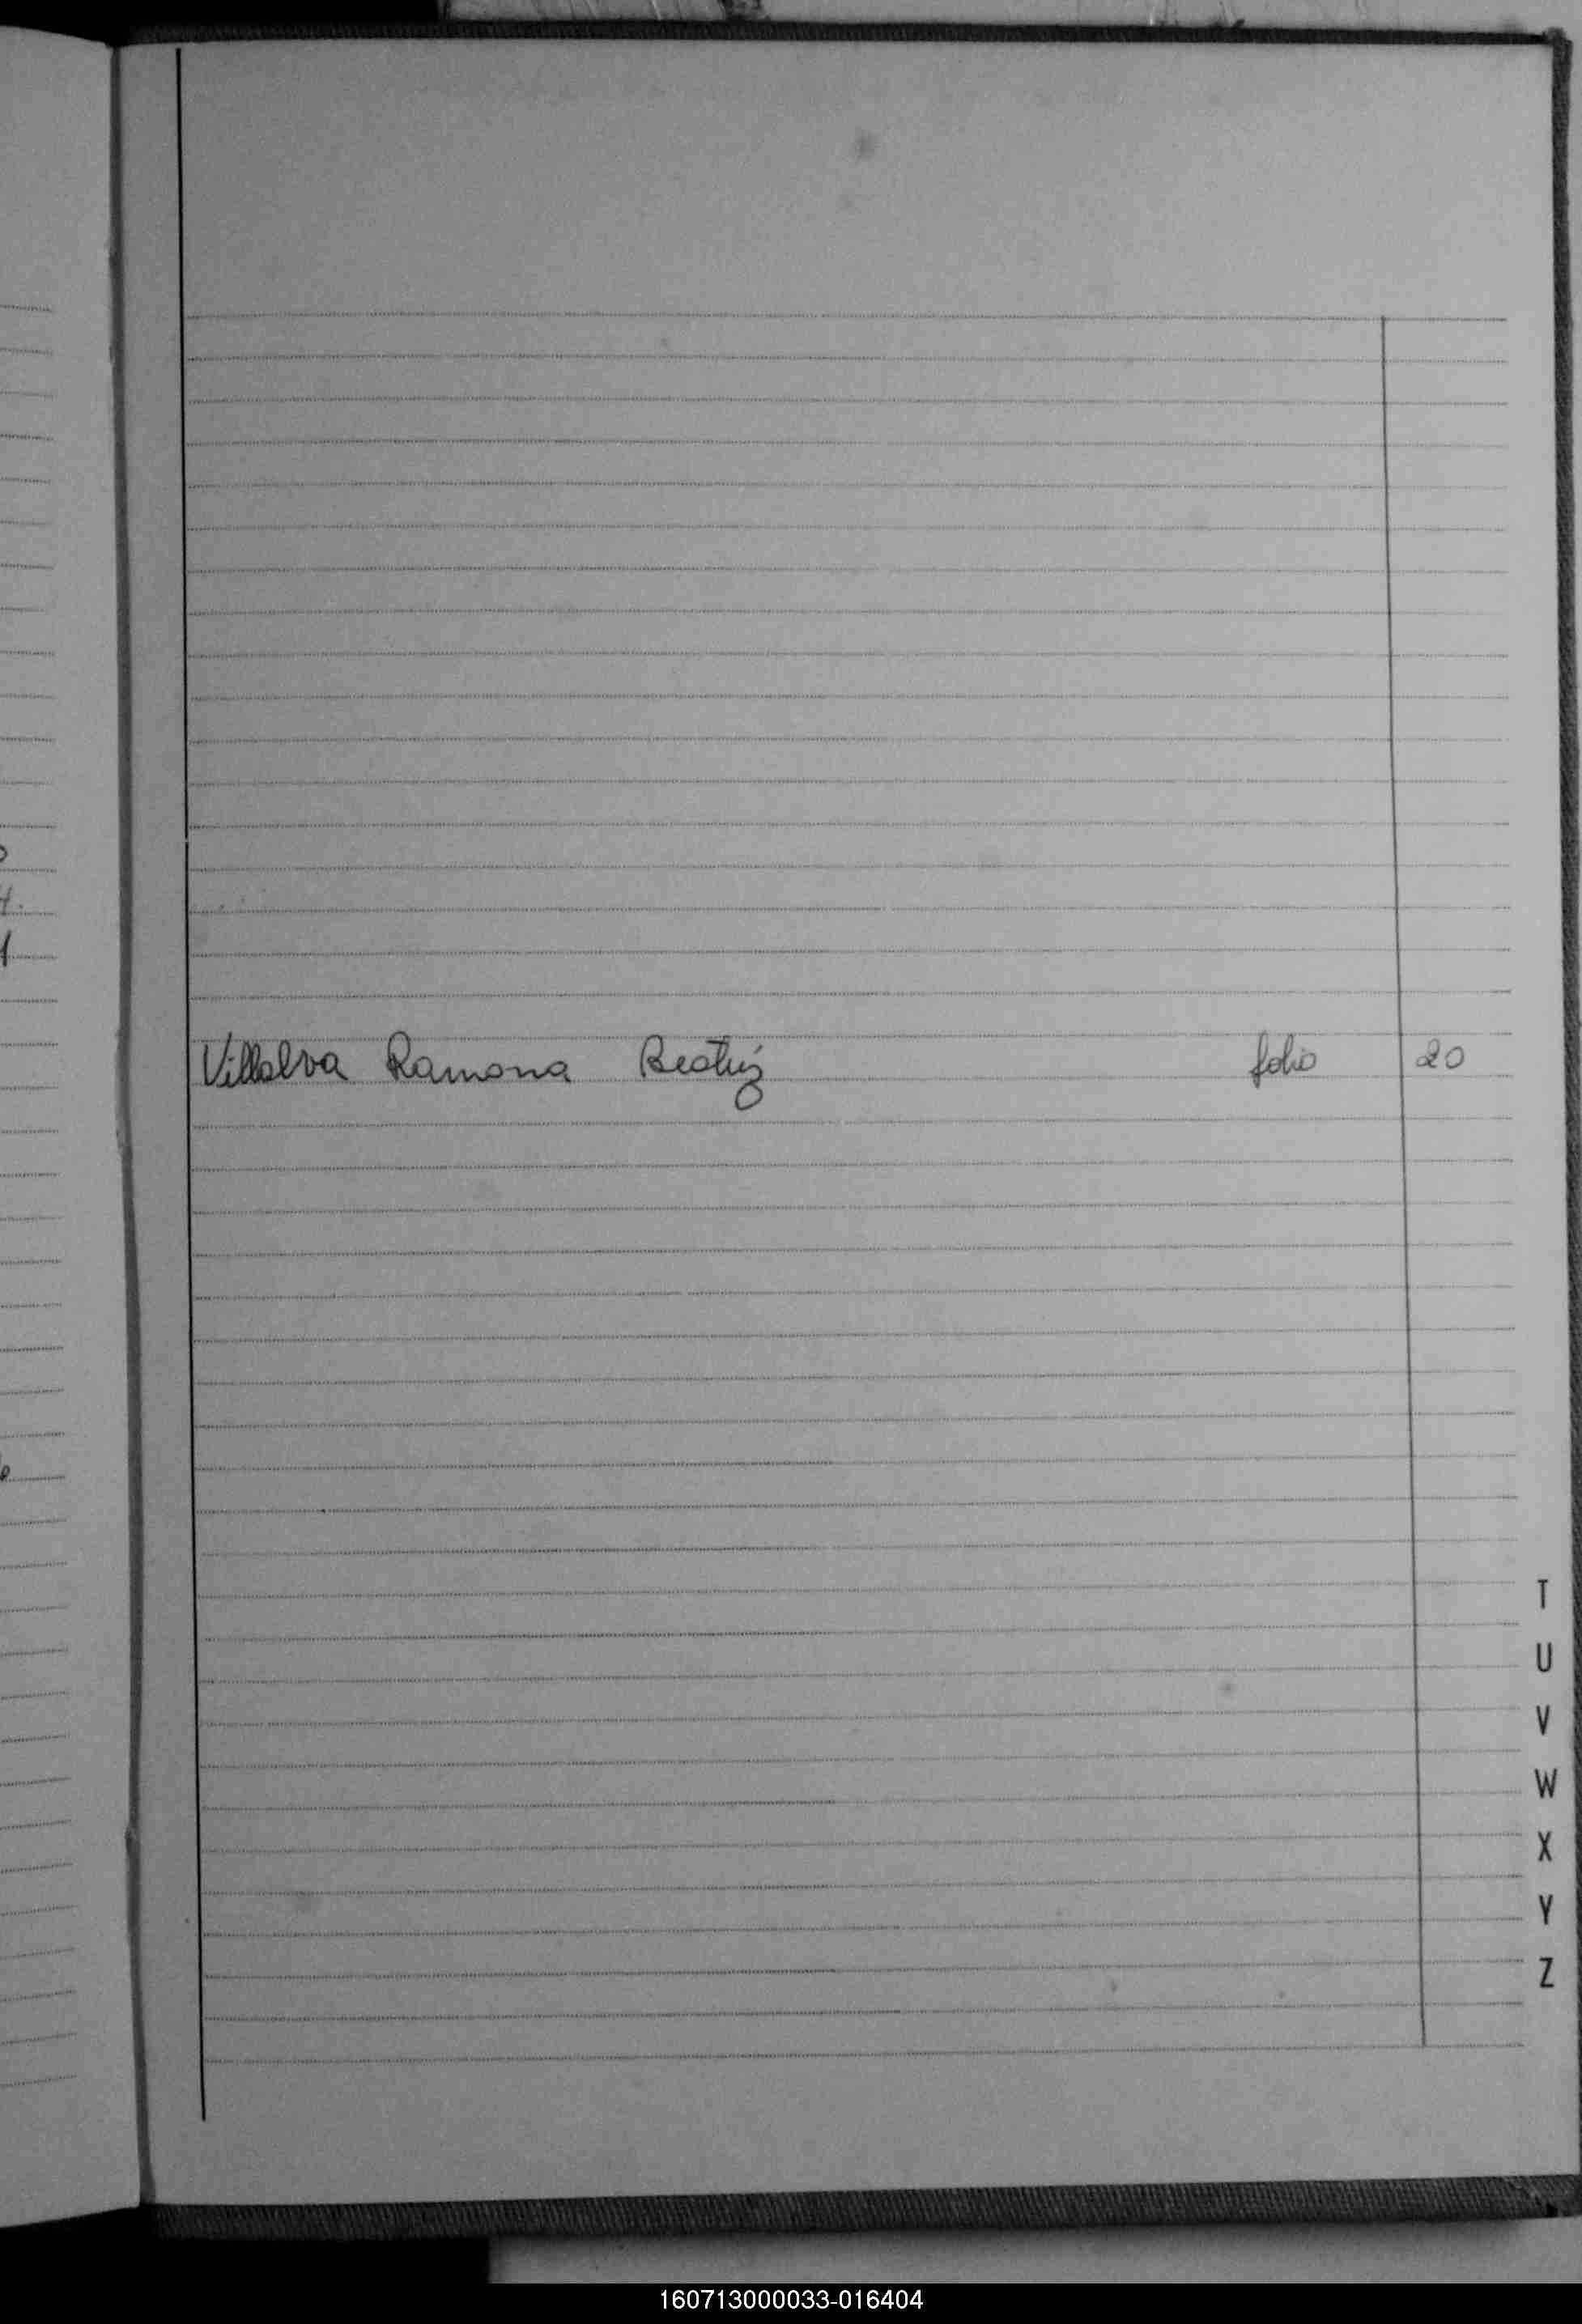 Villalva Ramona Beatriz folio 20
T
U
V
W
X
Y
Z
160713000033-016404